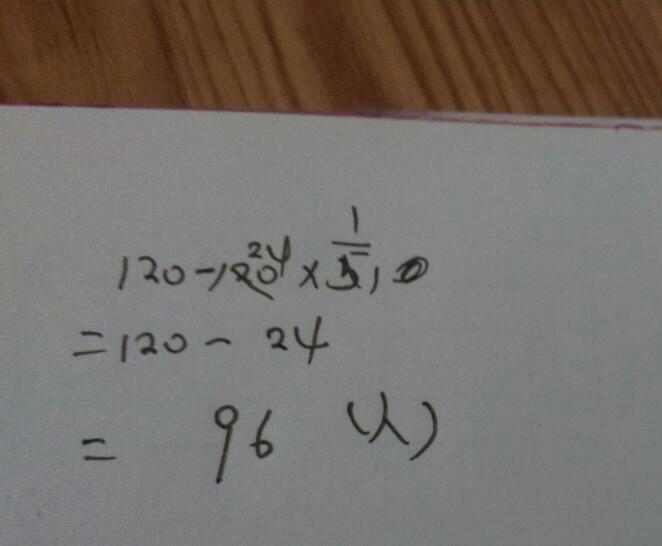 120-120×1/5
=120-24
=96(人)